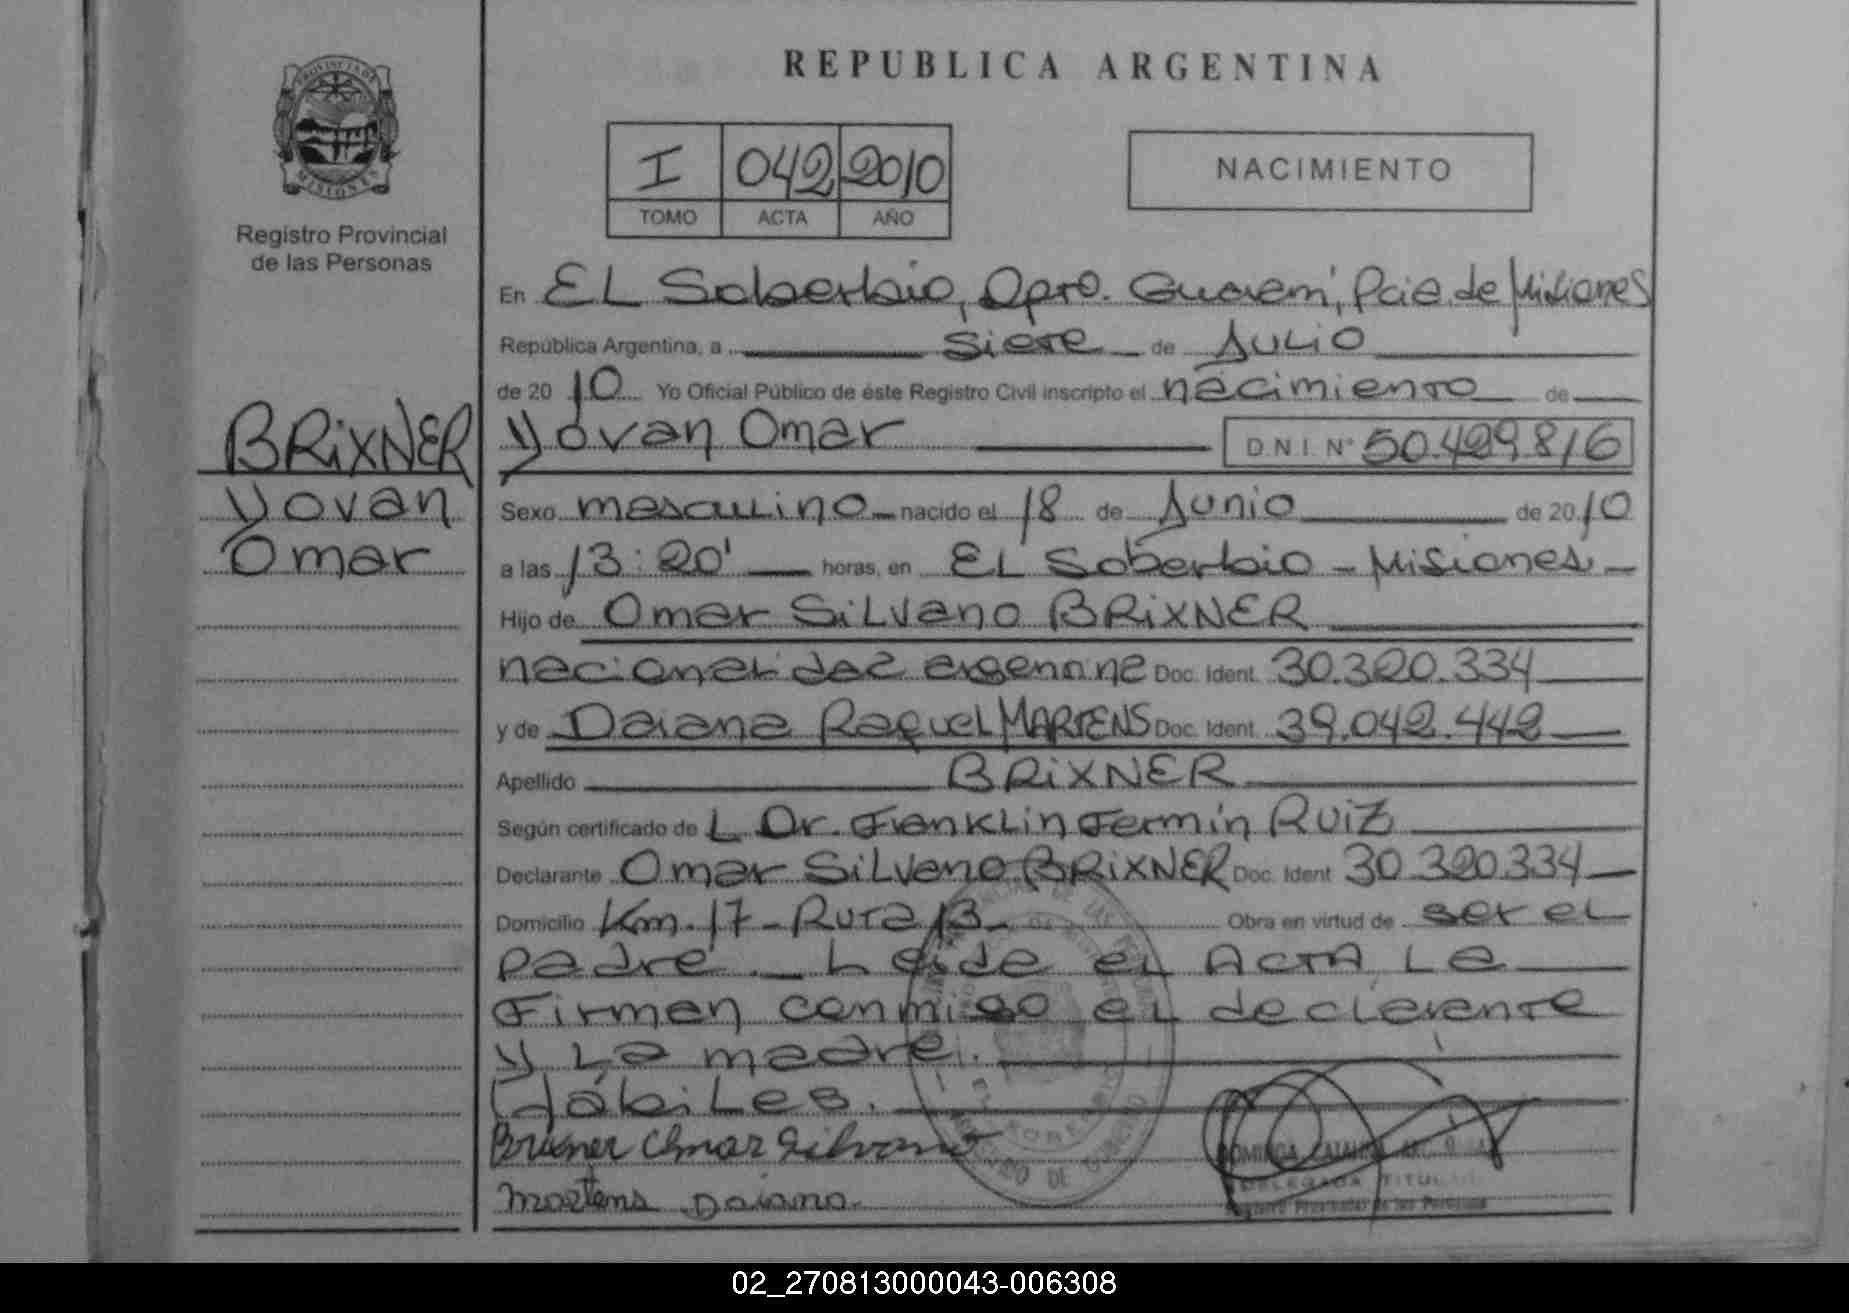 PROVINCIA DE
MISIONES
Registro Provincial
de las Personas
BRiXNER
Yovan
Omar
REPUBLICA ARGENTINA
I 042 2010
TOMO ACTA AÑO
NACIMIENTO
En EL Soberbio, Dpto. Guarani, Pcia de Misiones
República Argentina, a Siete de Julio
de 2010 Yo Oficial Público de éste Registro Civil inscripto el nacimiento de
Yovan Omar D.N.I. N° 50.429.816
Sexo masculino nacido el 18 de Junio de 2010
a las 13:20' horas, en EL Soberbio - Misiones -
Hijo de Omar Silvano BRiXNER
nacionalidad argentina Doc. Ident. 30.320.334
y de Daiana Raquel MARTENS Doc. Ident. 39.042.442
Apellido BRiXNER
Según certificado de L Dr. Franklin Fermín Ruiz
Declarante Omar Silvano BRiXNER Doc. Ident 30.320.334
Domicilio Km. 17 - Ruta 13 - Obra en virtud de ser el
padre. Leída el Acta La
Firman conmigo el declarante
y La madre.
Hábiles.
Brixner Omar Silvano
Martens Daiana.
DELEGADA TITULAR
Registro Provincial de las Personas
02_270813000043-006308